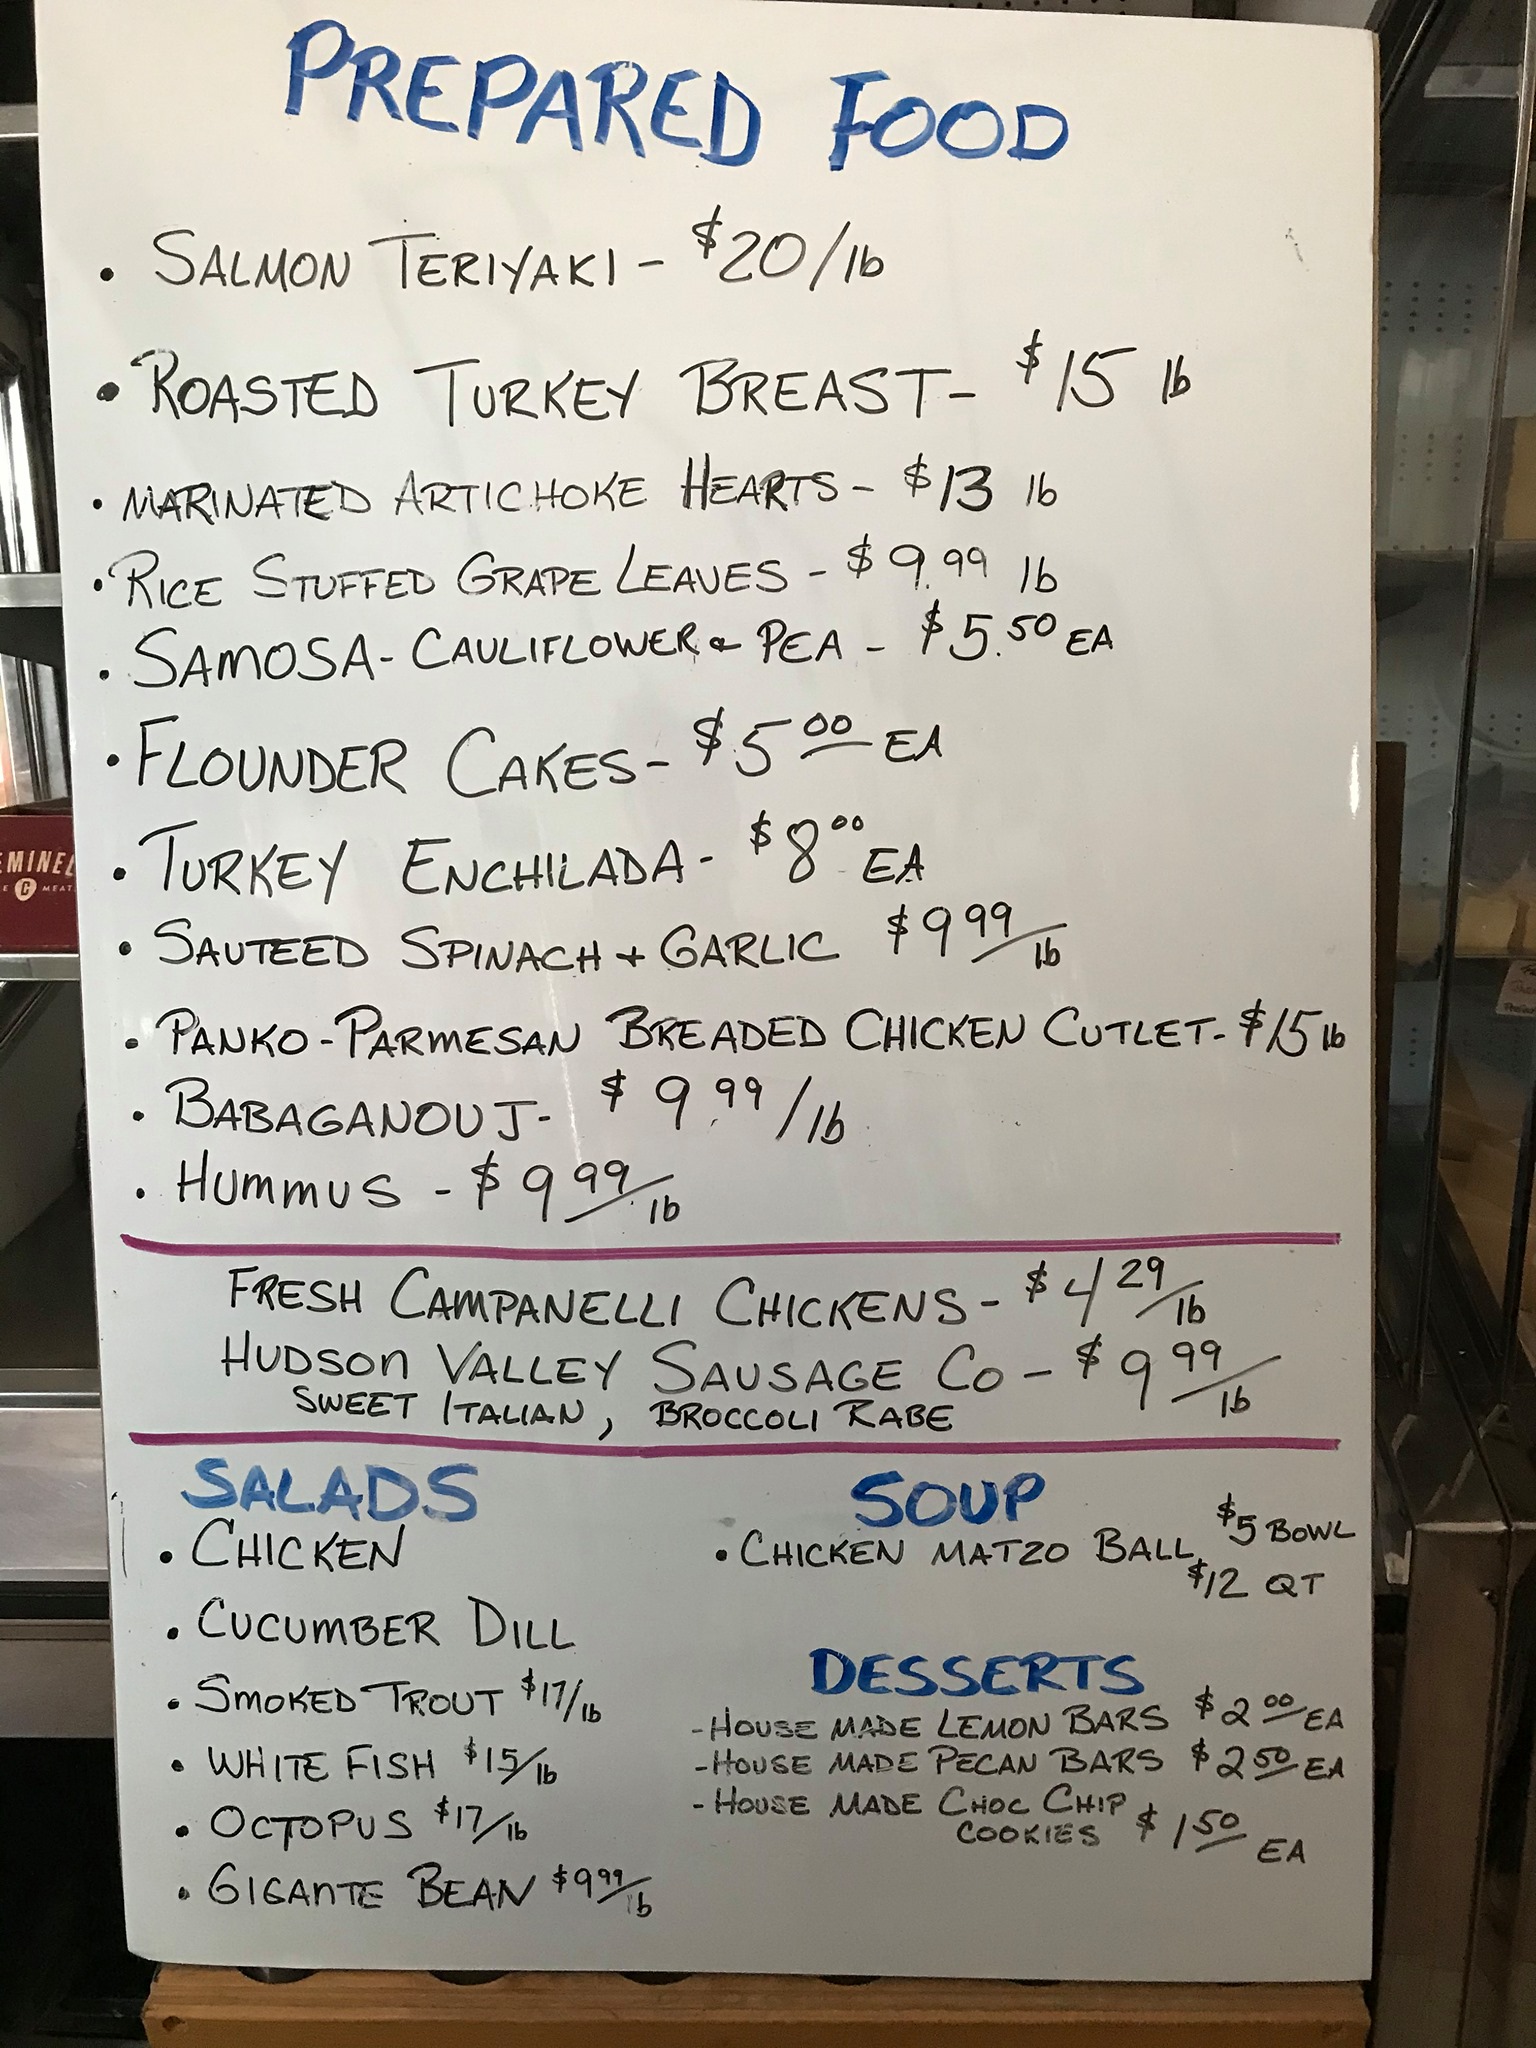 PREPARED FOOD
• SALMON TERIYAKI - $20/lb
• ROASTED TURKEY BREAST - $15 lb
• MARINATED ARTICHOKE HEARTS - $13 lb
• RICE STUFFED GRAPE LEAVES - $9.99 lb
• SAMOSA - CAULIFLOWER & PEA - $5.50 EA
• FLOUNDER CAKES - $5 00 EA
• TURKEY ENCHILADA - $8 00 EA
• SAUTEED SPINACH + GARLIC $9 99/lb
• PANKO-PARMESAN BREADED CHICKEN CUTLET - $15 lb
• BABAGANOUJ - $9.99/lb
• HUMMUS - $9.99/lb
FRESH CAMPANELLI CHICKENS - $4 29/lb
HUDSON VALLEY SAUSAGE CO - $9 99/lb
SWEET ITALIAN, BROCCOLI RABE
SALADS
• CHICKEN
• CUCUMBER DILL
• SMOKED TROUT $17/lb
• WHITE FISH $15/lb
• OCTOPUS $17/lb
• GIGANTE BEAN $9 99/lb
SOUP
• CHICKEN MATZO BALL $5 BOWL
$12 QT
DESSERTS
- HOUSE MADE LEMON BARS $2 00 EA
- HOUSE MADE PECAN BARS $2 50 EA
- HOUSE MADE CHOC CHIP
COOKIES $1 50 EA